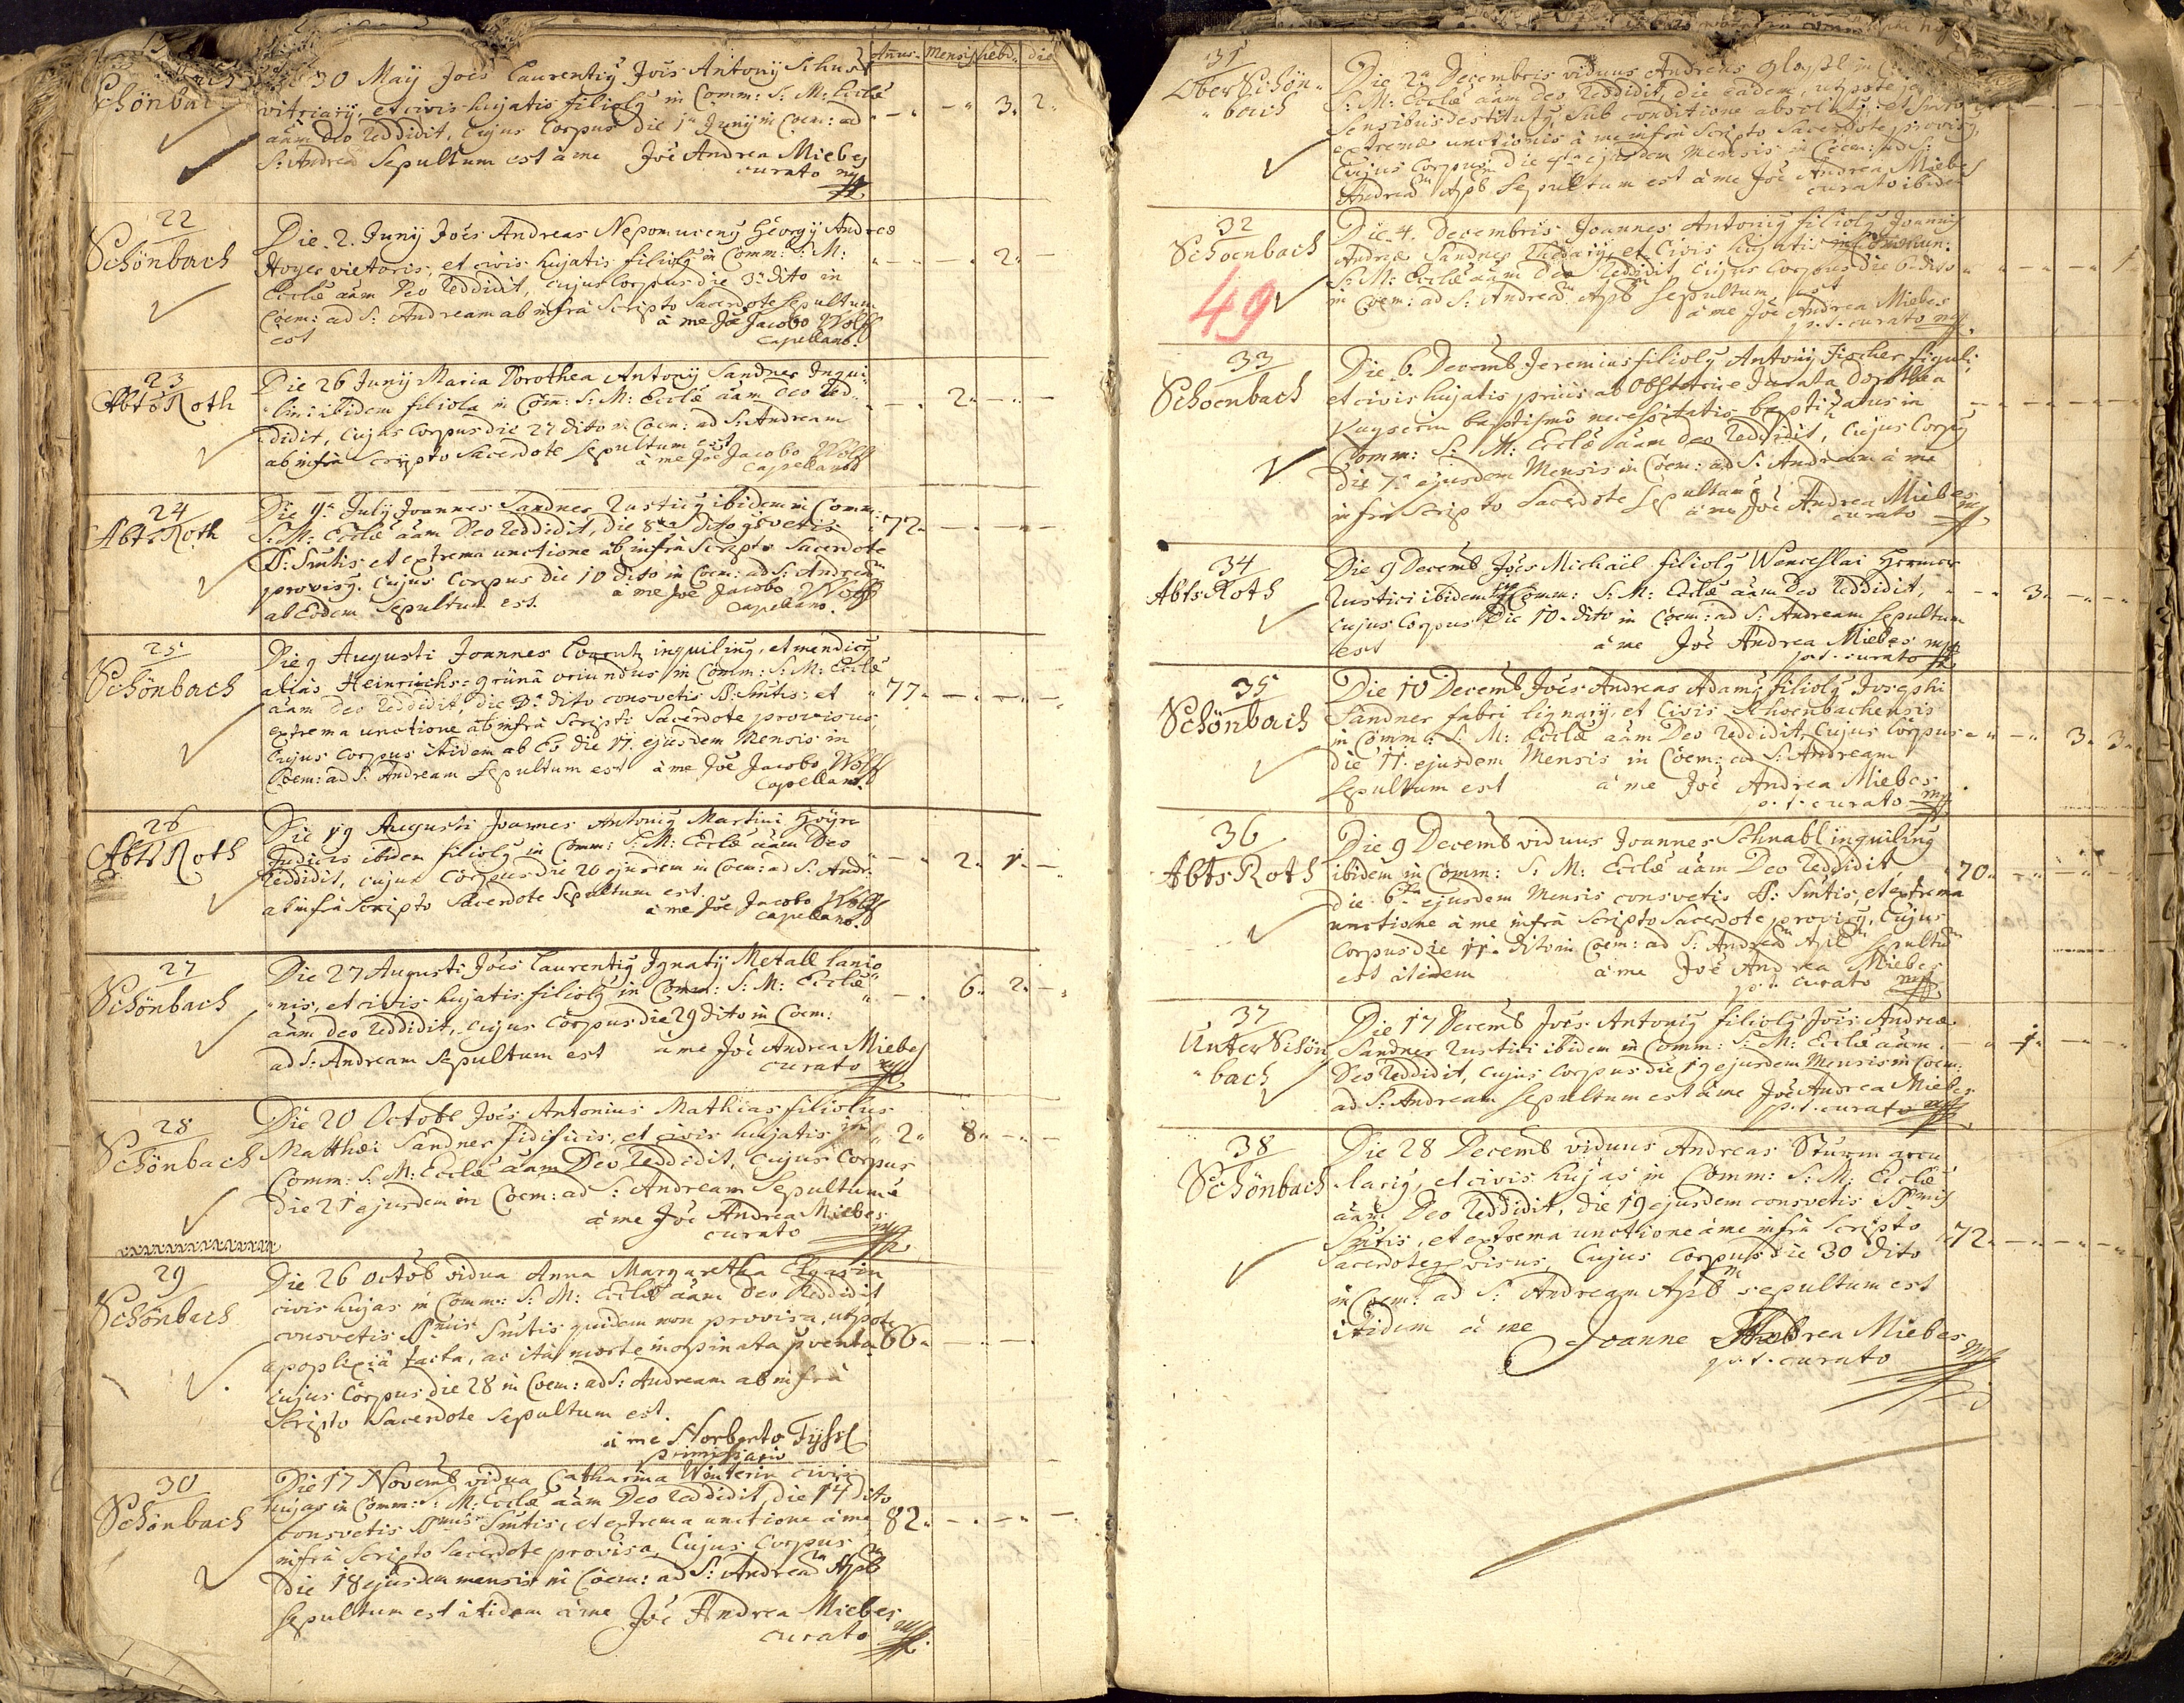 Annus. Mens. Hebd. die
Schönbach
30 Maÿ Joēs Laurentiq Jois Antonÿ Schust
vitriarÿ, et civis hujatis filiolq in Comm: S: M: Ecclæ
aām Deo reddidit, cujus Corpus die 1a Junÿ in Coem: ad
3. 2.
S: Andreā Sepultum est à me Joē Andrea Miebes
curato mp
22
Schönbach
Die 2. Junÿ Joēs Andreas Nepomucenq Georgÿ Andreæ
Hoyer vietoris, et civis hujatis filiolq in Comm: S: M:
2.
Ecclæ aām Deo reddidit, cujus Corpus die 3a dito in
Coem: ad S: Andream ab infrà Scripto Sacerdote Sepultum
est à me Joē Jacobo Wolff
Capellano.
23
AbtsRoth
Die 26 Junÿ Maria Dorothea Antonÿ Sandner Inqui-
lini ibidem filiola in Com: S: M: Ecclæ aām Deo red-
2.
didit, cujus Corpus die 27 dito in Coem: ad S: Andream
ab infrà Scripto Sacerdote Sepultum est
à me Joē Jacobo Wolff
Capellano
24
AbtsRoth
Die 9a Julÿ Joannes Sandner Rusticq ibidem in Comm:
S: M: Ecclæ aām Deo reddidit, die 8va dito csvetis
72.
SS: Smtis et extrema unctione ab infrà Scripto Sacerdote
provisq. Cujus Corpus die 10 dito in Coem: ad S: Andream
ab Eodem Sepultum est. à me Joē Jacobo Wolff
Capellano.
25
Schönbach
Die 9 Augusti Joannes Lorentz inquilinq, et mendicq
aliàs Heinrichs=grünâ oriundus in Comm: S: M: Ecclæ
77.
aām Deo reddidit, die 3a dito consvetis SS. Smtis: et
extrema unctione ab infrà Scripti Sacerdote provisus,
Cujus Corpus itidem ab Eo die 11. ejusdem Mensis in
Coem: ad S: Andream Sepultum est à me Joē Jacobo Wolff
Capellano.
26
AbtsRoth
Die 19 Augusti Joannes Antoniq Martini Hoÿer
Judicis ibidem filiolq in Comm: S: M: Ecclæ aām Deo
2. 1.
reddidit, cujus Corpus die 20 ejusdem in Coem: ad S: Andr:
ab infrà Scripto Sacerdote Sepultum est
à me Joē Jacobo Wolff
Capellano.
27
Schönbach
Die 27 Augusti Joēs Laurentiq Ignatÿ Metall lanio
nis, et civis hujatis filiolq in Comm: S: M: Ecclæ
6. 2.
aām Deo reddidit, cujus Corpus die 29 dito in Coem:
ad S: Andream Sepultum est à me Joē Andrea Miebes
curato mp
28
Schönbach
Die 20 Octobr Joēs Antonius Mathias filiolus
Matthæi Sandner fidificis, et civis hujatis in
2. 8.
Comm: S: M: Ecclæ aām Deo reddidit, cujus Corpus
Die 21 ejusdem in Coem: ad S: Andream Sepultum ē
à me Joē Andrea Miebes
curato mp
29
Schönbach
Die 26 Octob vidua Anna Margaretha
civis hujas in Comm: S: M: Ecclæ aām Deo Reddidit
consvetis SSmis Smtis quidem non provisa, utpote
apoplexiâ tacta, ac ita morte inopinata pventa
66.
cujus Corpus die 28 in Coem: ad S: Andream ab infrà
Scripto Sacerdote Sepultum est.
à me Norberto
primissario
30
Schönbach
Die 17 Novemb vidua Catharina Winterin civis
hujas in Comm: S: M: Ecclæ aām Deo reddidit, die 14 dito
consvetis SSmis Smtis, et extrema unctione à me
82.
infrà Scripto Sacerdote provisa. Cujus Corpus
die 18 ejusdem mensis in Coem: ad S: Andream Apb
Sepultum est itidem à me Joē Andrea Miebes
curato mp
31
OberSchön-
bach
Die 2a Decembris viduus Andreas
S: M: Ecclæ aām Deo reddidit, die eadem, utpote
Sensibus destitutq, sub conditione absolutq, et
extremæ unctionis à me infrà Scripto Sacerdote provisq,
Cujus Corpus die 4ta ejusdem Mensis in Coem: ad S:
Andream Apb Sepultum est à me Joē Andrea Miebes
curato ibidem
32
Schoenbach
49
Die 4. Decembris Joannes Antoniq filiolq Joannis
Andreæ Sandner et Civis hujatis in Commun:
S: M: Ecclæ aām Deo reddidit, cujus Corpus die 6 dito
1
in Coem: ad S: Andream Apb Sepultum est
à me Joē Andrea Miebes
p. t. curato mp
33
Schoenbach
Die 6. Decemb Jeremias filiolq Antonÿ Fischer figuli
et civis hujatis priùs ab Obstetrice Jurata Dorothea
Kayserin baptismô necessitatis baptizatus in
Comm: S: M: Ecclæ aām Deo reddidit, cujus Corpq
die 7a ejusdem Mensis in Coem: ad S: Andream à me
infrà Scripto Sacerdote Sepultum ē
à me Joē Andrea Miebes
curato mp
34
AbtsRoth
Die 9 Decemb Joēs Michaël filiolq Wenceslai Hermer
Rustici ibidem in Comm: S: M: Ecclæ aām Deo reddidit,
3.
cujus Corpus Die 10. dito in Coem: ad S: Andream Sepultum
est à me Joē Andrea Miebes mp
p. t. curato
35
Schönbach
Die 10 Decemb Joēs Andreas Adamq filiolq Josephi
Sandner fabri lignarÿ, et Civis Schoenbachensis
in Comm: S: M: Ecclæ aām Deo reddidit, cujus Corpus
3. 3.
die 11. ejusdem Mensis in Coem: ad S: Andream
Sepultum est à me Joē Andrea Miebes
p. t. curato mp
36
AbtsRoth
Die 9 Decemb viduus Joannes Schnabl inquilinq
ibidem in Comm: S: M: Ecclæ aām Deo reddidit,
70.
die 6ta ejusdem Mensis consvetis SS: Smtis, et extrema
unctione à me infrà Scripto Sacerdote provisq, cujus
Corpus die 11. dito in Coem: ad S: Andream Apb Sepultum
est itidem à me Joē Andrea Miebes
p. t. curato mp
37
UnterSchön
bach
Die 17 Decemb Joēs Antoniq filiolq Jois Andreæ
Sandner Rustici ibidem in Comm: S: M: Ecclæ aām
1.
Deo reddidit, cujus Corpus die 19 ejusdem Mensis in Coem:
ad S: Andream Sepultum est à me Joē Andrea Miebes
p. t. curato mp
38
Schönbach
Die 28 Decemb viduus Andreas Sturm arcu
lariq, et civis hujas in Comm: S: M: Ecclæ
aām Deo reddidit, die 19 ejusdem consvetis SSmis
Smtis, et extrema unctione à me infrà Scripto
72.
Sacerdote pvisus, cujus Corpus die 30 dito
in Coem: ad S: Andream Apb sepultum est
itidem à me Joanne Andrea Miebes mp
p. t. curato